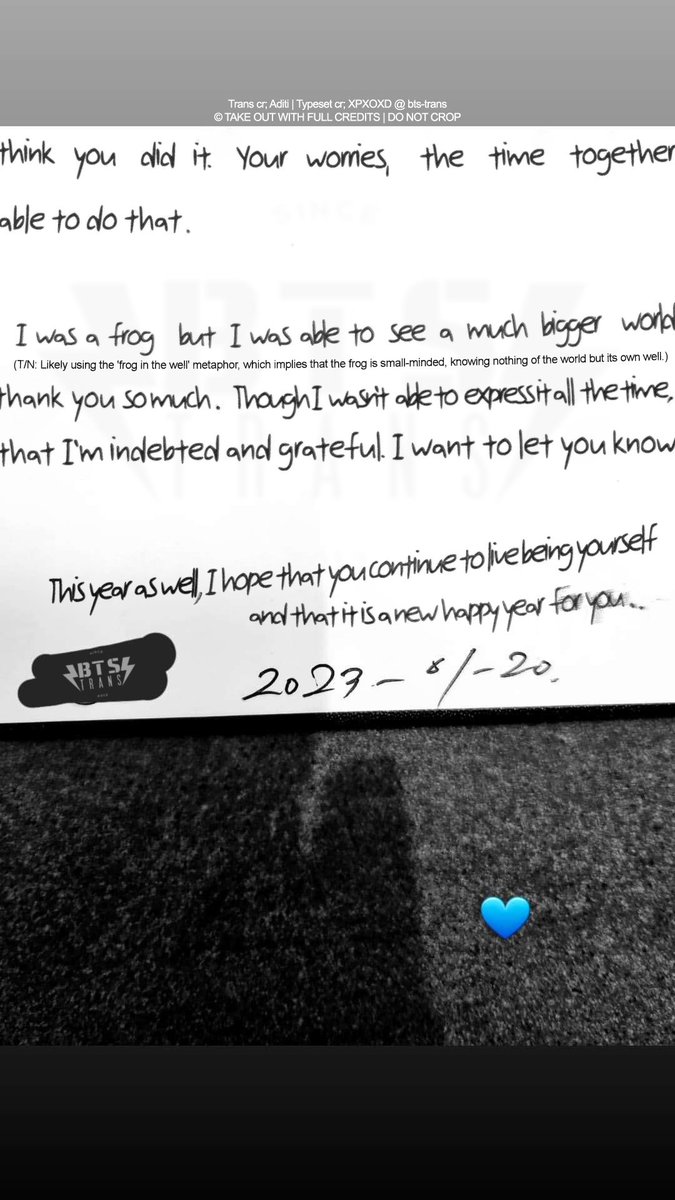 Trans cr; Aditi | Typeset cr; XPXOXD @ bts-trans
© TAKE OUT WITH FULL CREDITS | DO NOT CROP
think you did it. Your worries, the time together
able to do that.
SINCE
BTS
I was a frog but I was able to see a much bigger world
(T/N: Likely using the 'frog in the well' metaphor, which implies that the frog is small-minded, knowing nothing of the world but its own well.)
thank you so much. Though I wasn't able to express it all the time,
that I'm indebted and grateful. I want to let you know
TRANS
This year as well, I hope that you continue to live being yourself
and that it is a new happy year for you..
BTS
TRANS
2023 - 8/-20.